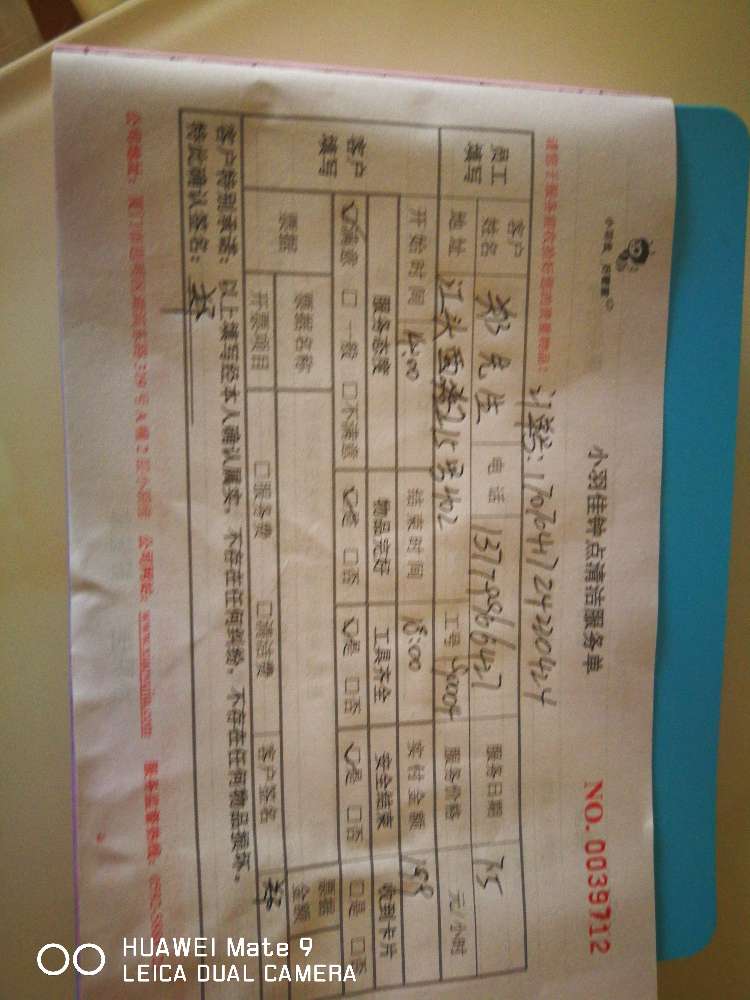 小羽佳钟点清洁服务单
NO.0039712
员工填写
客户姓名 郑先生 电话 13779966427 服务日期 7.5
地址 江头西路215号402 工号 服务价格 元/小时
客户填写
开始时间 14:00 结束时间: 18:00 实付金额 158
服务态度 物品完好 工具齐全 安全结束 收到卡片
☑满意 □一般 □不满意 ☑是 □否 ☑是 □否 ☑是 □否 □是 □否
票据 票据名称 票据金额
开票项目 □服务费 □清洁费 客户签名 郑
客户特别承诺:以上填写经本人确认属实,不存在任何纠纷,不存在任何物品损坏。
特此确认签名: 郑
HUAWEI Mate 9
LEICA DUAL CAMERA